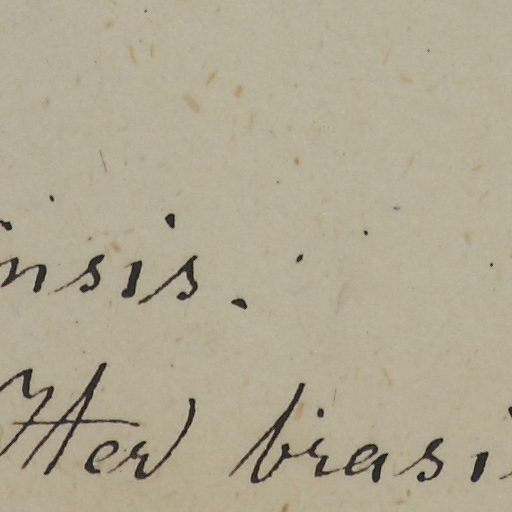 insis.
Iter brasi